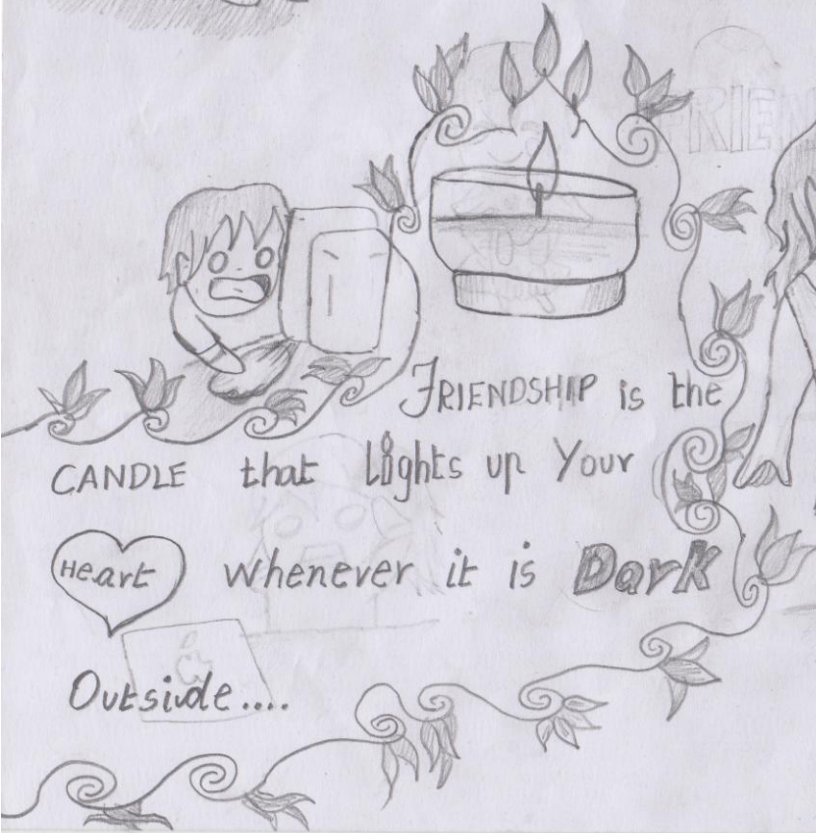 RIEN
FRIENDSHIP is the
CANDLE that Lights up Your
Heart whenever it is Dark
Outside....